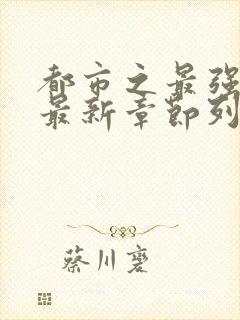 都市之最强
最新章节列
蔡川